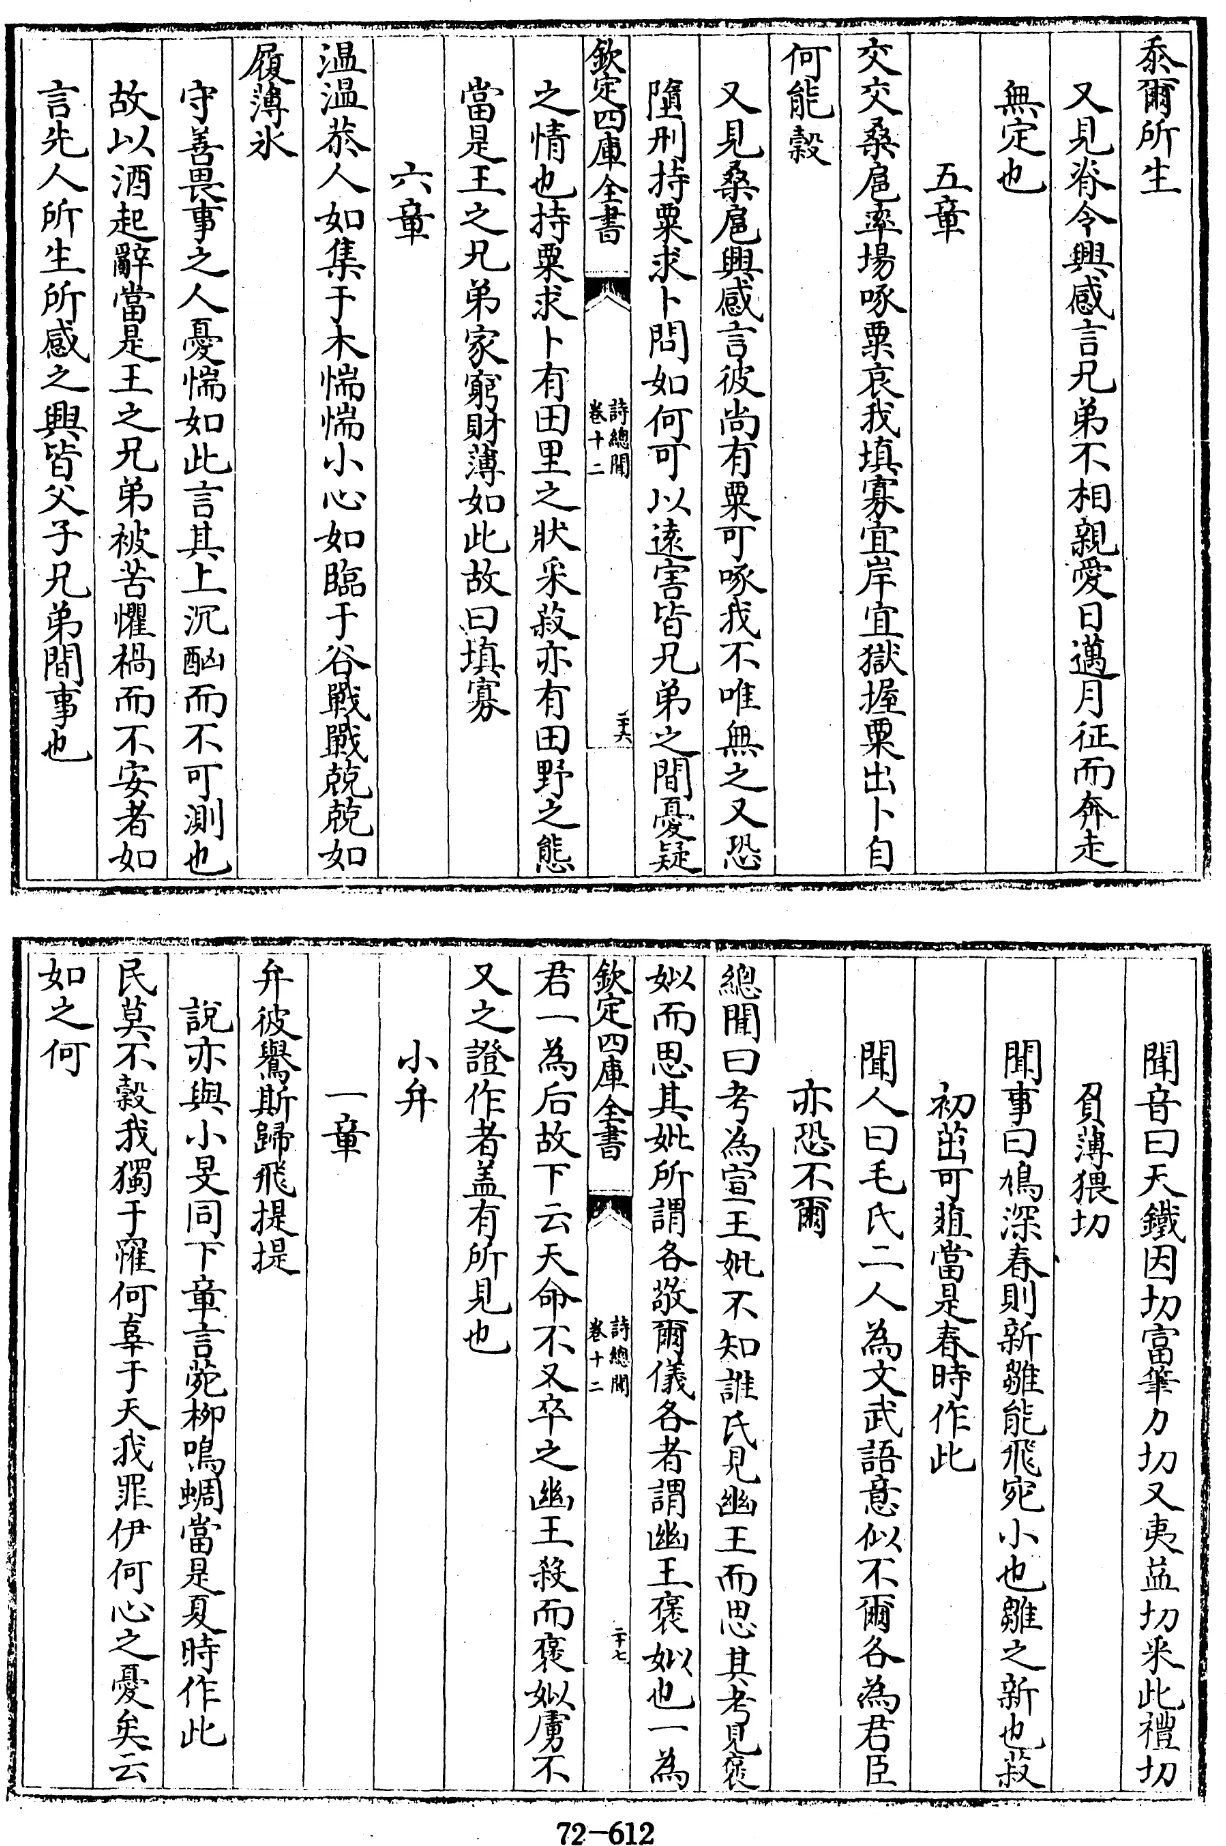 忝爾所生
又見脊令興感言兄弟不相親愛日邁月征而奔走
無定也
五章
交交桑扈率場啄粟哀我填寡宜岸宜獄握粟出卜自
何能穀
又見桑扈興感言彼尚有粟可啄我不唯無之又恐
隨刑持粟求卜問如何可以遠害皆兄弟之間憂疑
欽定四庫全書
詩總聞
卷十二
二十六
之情也持粟求卜有田里之狀采菽亦有田野之態
當是王之兄弟家窮財薄如此故曰填寡
六章
温温恭人如集于木惴惴小心如臨于谷戰戰兢兢如
履薄氷
守善畏事之人憂惴如此言其上沉酗而不可測也
故以酒起辭當是王之兄弟被苦懼禍而不安者如
言先人所生所感之興皆父子兄弟間事也
聞音曰天鐵因切富筆力切又夷益切采此禮切
負薄猥切
聞事曰鳩深春則新雛能飛宛小也雛之新也菽
初茁可葅當是春時作此
聞人曰毛氏二人為文武語意似不爾各為君臣
亦恐不爾
總聞曰考為宣王妣不知誰氏見幽王而思其考見褒
姒而思其妣所謂各敬爾儀各者謂幽王褒姒也一為
欽定四庫全書
詩總聞
卷十二
二十七
君一為后故下云天命不又卒之幽王殺而褒姒虜不
又之證作者盖有所見也
小弁
一章
弁彼鸒斯歸飛提提
說亦與小旻同下章言菀柳鳴蜩當是夏時作此
民莫不穀我獨于罹何辜于天我罪伊何心之憂矣云
如之何
72-612